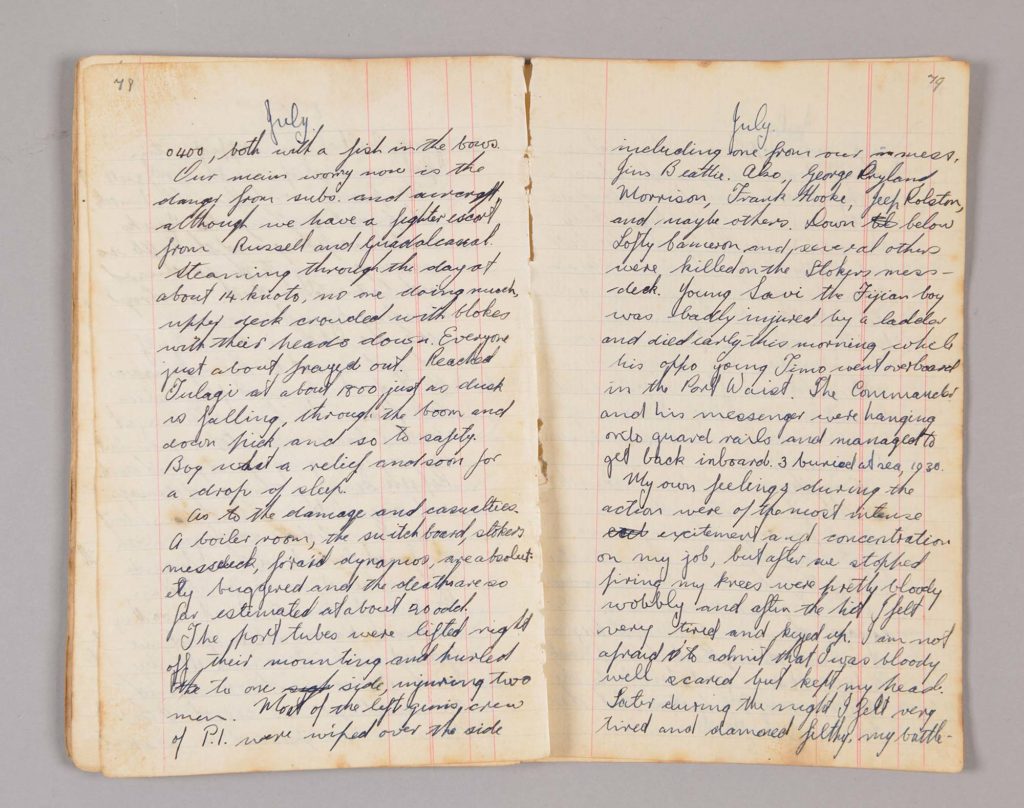 78
July
0400, both with a fish in the bows.
Our main worry now is the
danger from subs. and aircraft,
although we have a fighter escort
from Russell and Guadalcanal.
Steaming through the day at
about 14 knots, no one doing much,
upper deck crowded with blokes
with their heads down. Everyone
just about frayed out. Reached
Tulagi at about 1800 just as dusk
is falling, through the boom and
down pick and so to safety.
Boy what a relief and soon for
a drop of sleep.
As to the damage and casualties.
A boiler room, the switchboard, stokers
messdeck, for'ard dynamos, are absolut-
ely buggered and the death are so
far estimated at about 20 odd.
The port tubes were lifted right
off their mounting and hurled
to one side, injuring two
men. Most of the left guns crew
of P.1. were wiped over the side
79
July.
including one from our mess,
Jim Beattie. Also, George Ryland
Morrison, Frank Hooke, Jeep Rolston,
and maybe others. Down below
Lofty Cameron, and several others
were killed on the Stokers mess-
deck. Young Savi the Fijian boy
was badly injured by a ladder
and died early this morning while
his oppo young Timo went overboard
in the Port Waist. The Commander
and his messenger were hanging
onto guard rails and managed to
get back inboard. 3 buried at sea, 1930.
My own feelings during the
action were of the most intense
excitement and concentration
on my job, but after we stopped
firing my knees were pretty bloody
wobbly and after the hit I felt
very tired and keyed up. I am not
afraid to admit that I was bloody
well scared but kept my head.
Later during the night I felt very
tired and damned filthy, my battle-